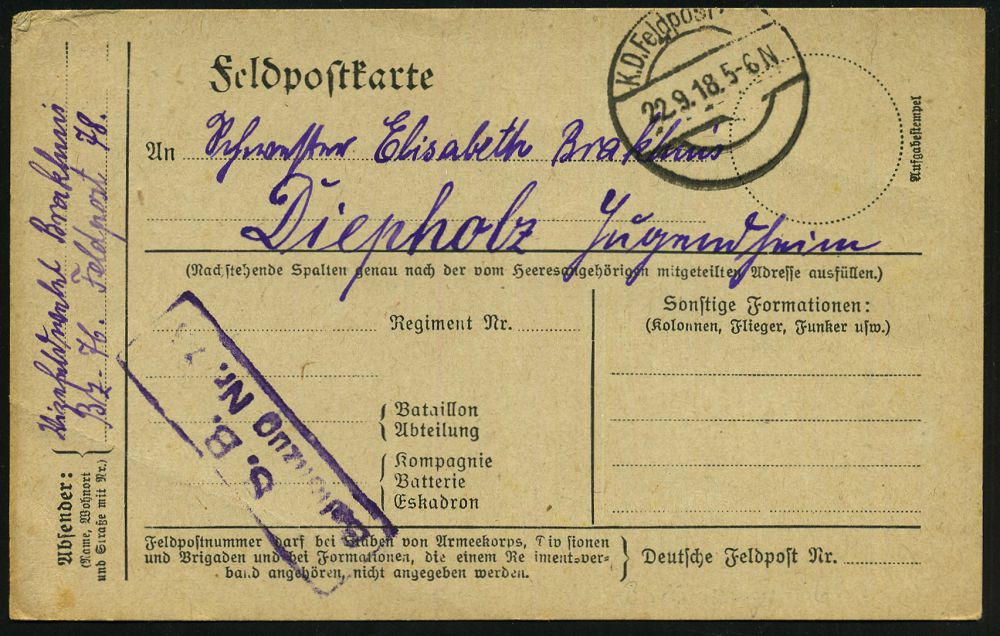 Feldpostkarte
K.D.Feldpost
22.9.18.5-6N
Aufgabestempel
An Schwester Elisabeth Brakhuis
Diepholz Jugendheim
(Nachstehende Spalten genau nach der vom Heeresangehörigen mitgeteilten Adresse ausfüllen.)
Regiment Nr.
Bataillon
Abteilung
Kompagnie
Batterie
Eskadron
Sonstige Formationen:
(Kolonnen, Flieger, Funker usw.)
S. B.
Nr.
Feldpostnummer darf bei Stäben von Armeekorps, Divisionen
und Brigaden und bei Formationen, die einem Regimentsver-
band angehören, nicht angegeben werden.
Deutsche Feldpost Nr.
Absender:
(Name, Wohnort
und Straße mit Nr.)
Brakhuis
BZ-76. Feldpost 78.